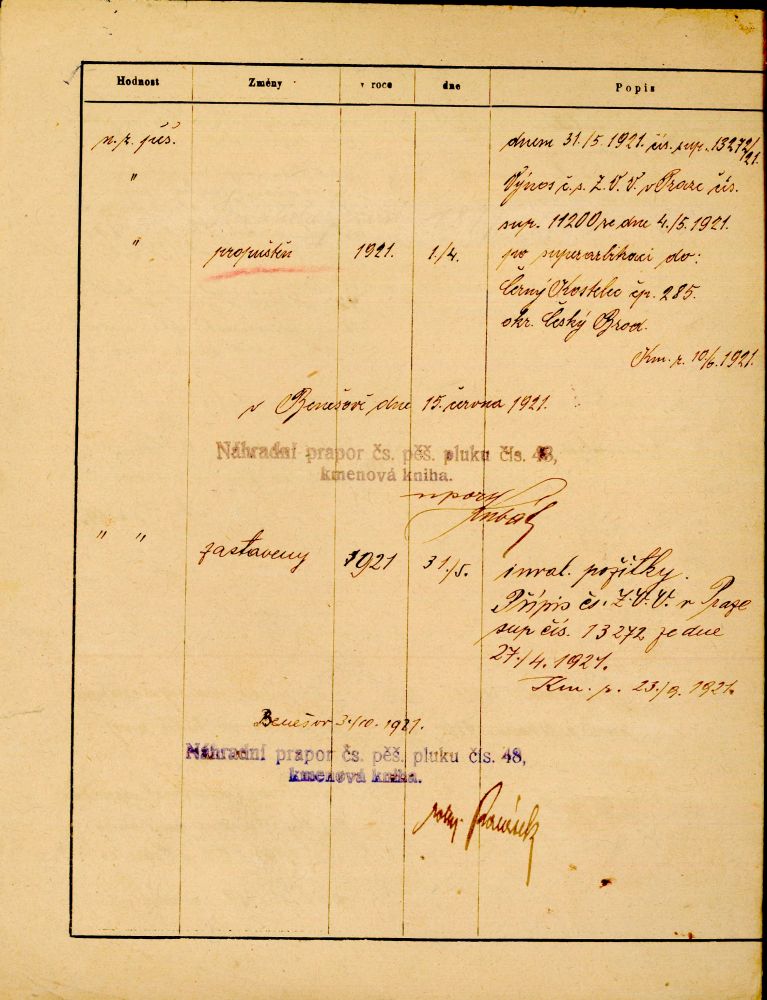 Hodnost Změny v roce dne Popis
dnem 31./5. 1921. čís. sup. 13272/
n. z. pěš. 121.
" Výnos č.s. Z. V. V. v Praze čís.
sup. 11200 ze dne 4./5. 1921.
" propuštěn 1921. 1./4. po superarbitraci do:
Černý Kostelec čp. 285.
okr. Český Brod.
Km. r. 10/6. 1921.
v Benešově dne 15. června 1921.
Náhradní prapor čs. pěš. pluku čís. 48,
kmenová kniha.
" " zastaveny 1921 31./5. inval. požitky.
Přípis čs. Z. V. V. v Praze
sup čís. 13272 ze dne
27./4. 1921.
Km. r. 23./9. 1921.
Benešov 3./10. 1921.
Náhradní prapor čs. pěš. pluku čís. 48,
kmenová kniha.